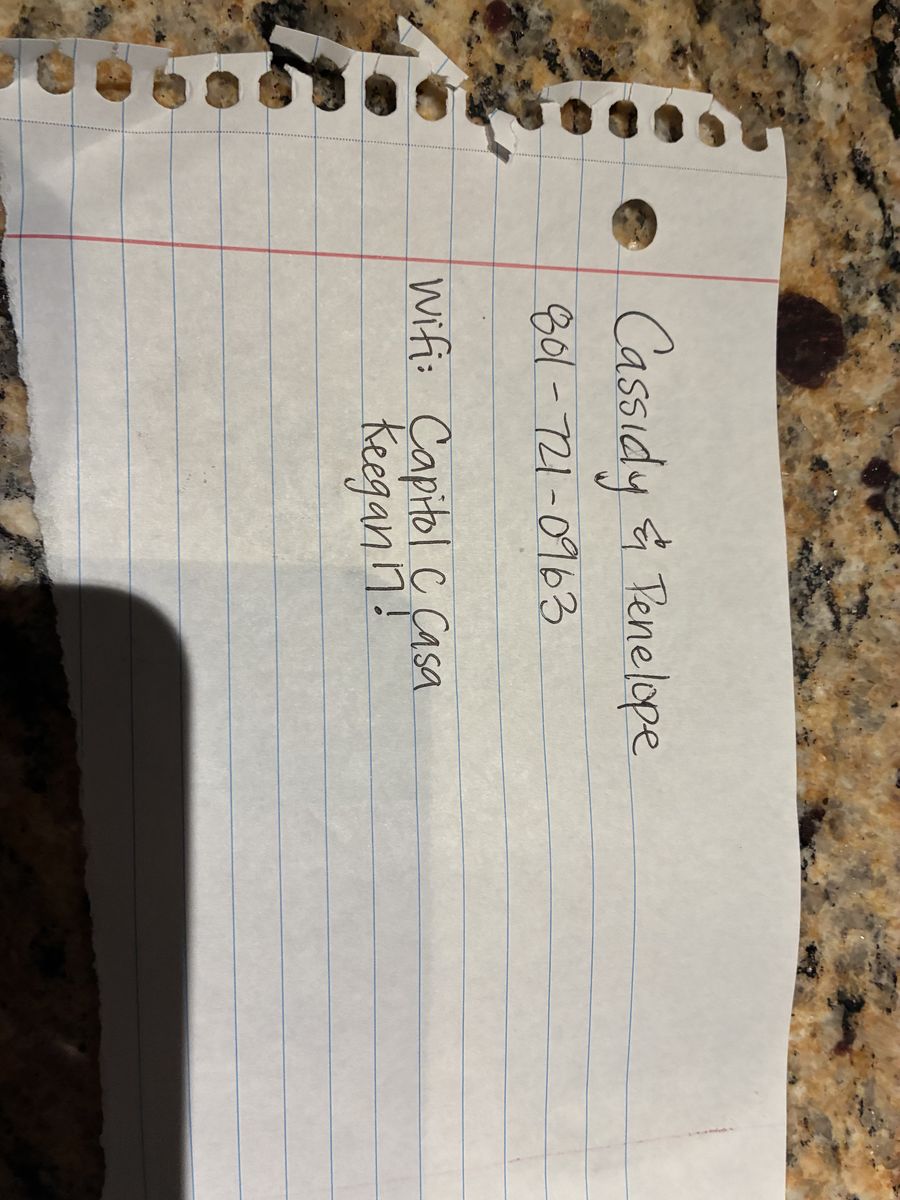 Cassidy & Penelope
801-721-0963
Wifi: Capitol C Casa
Keegan 17!